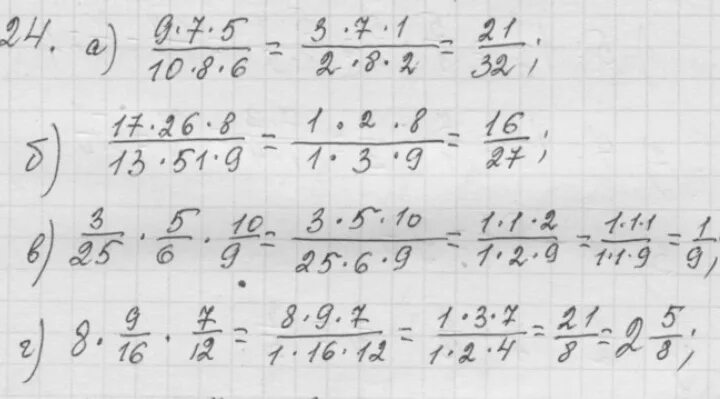 24. а) 9·7·5/10·8·6 = 3·7·1/2·8·2 = 21/32;
б) 17·26·8/13·51·9 = 1·2·8/1·3·9 = 16/27;
в) 3/25 · 5/6 · 10/9 = 3·5·10/25·6·9 = 1·1·2/1·2·9 = 1·1·1/1·1·9 = 1/9;
г) 8 · 9/16 · 7/12 = 8·9·7/1·16·12 = 1·3·7/1·2·4 = 21/8 = 2 5/8;